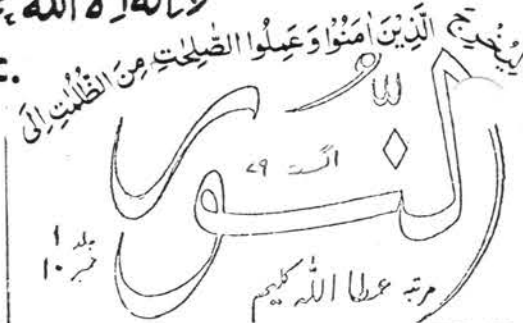 لا إله إلا الله
لِيُخْرِجَ الَّذِيْنَ اٰمَنُوْا وَعَمِلُوا الصّٰلِحٰتِ مِنَ الظُّلُمٰتِ اِلَى
النُّـــور
اگست ۷۹
جلد ۱
نمبر ۱۰
مرتبہ عطا اللہ کلیم